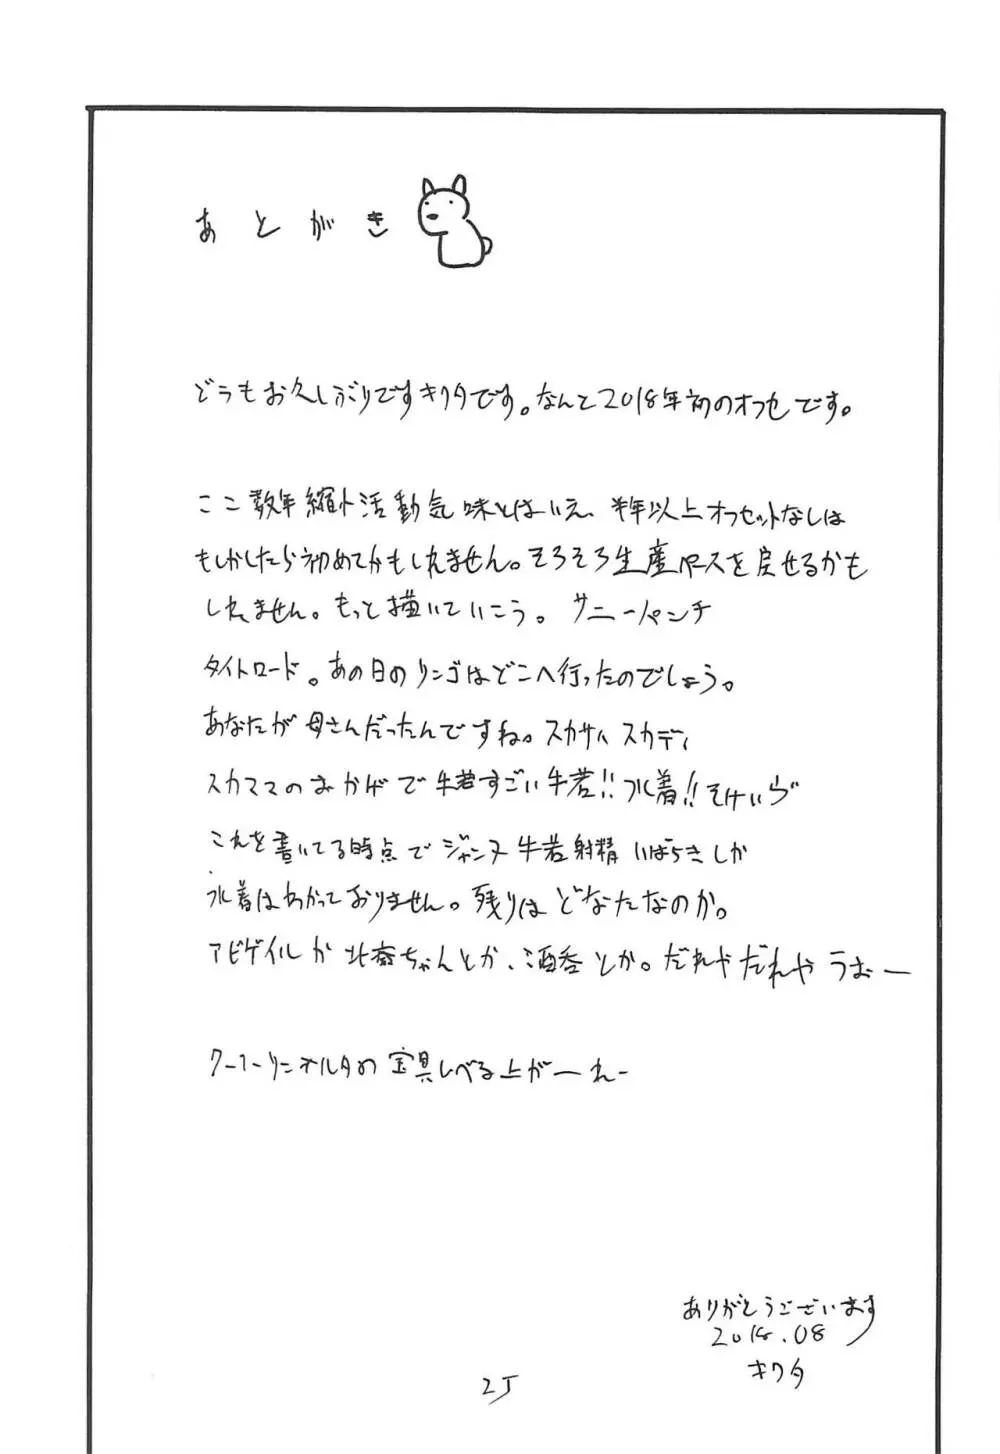 あとがき
どうもお久しぶりですキクタです。なんと2018年初のオフセです。
ここ数年縮小活動気味とはいえ、半年以上オフセットなしは
もしかしたら初めてかもしれません。そろそろ生産ペースを戻せるかも
しれません。もっと描いていこう。サニーパンチ
タイトロード。あの日のリンゴはどこへ行ったのでしょう。
あなたが母さんだったんですね。スカサハ スカディ
スカママのおかげで牛若すごい牛若!!水着!!そけいぶ
これを書いてる時点でジャンヌ 牛若 射精 いばらきしか
水着はわかっておりません。残りはどなたなのか。
アビゲイルか北斎ちゃんとか、酒呑とか。だれやだれやうおー
クーフーリンオルタの宝具レベる上がーれー
ありがとうございます
2018.08
キクタ
25